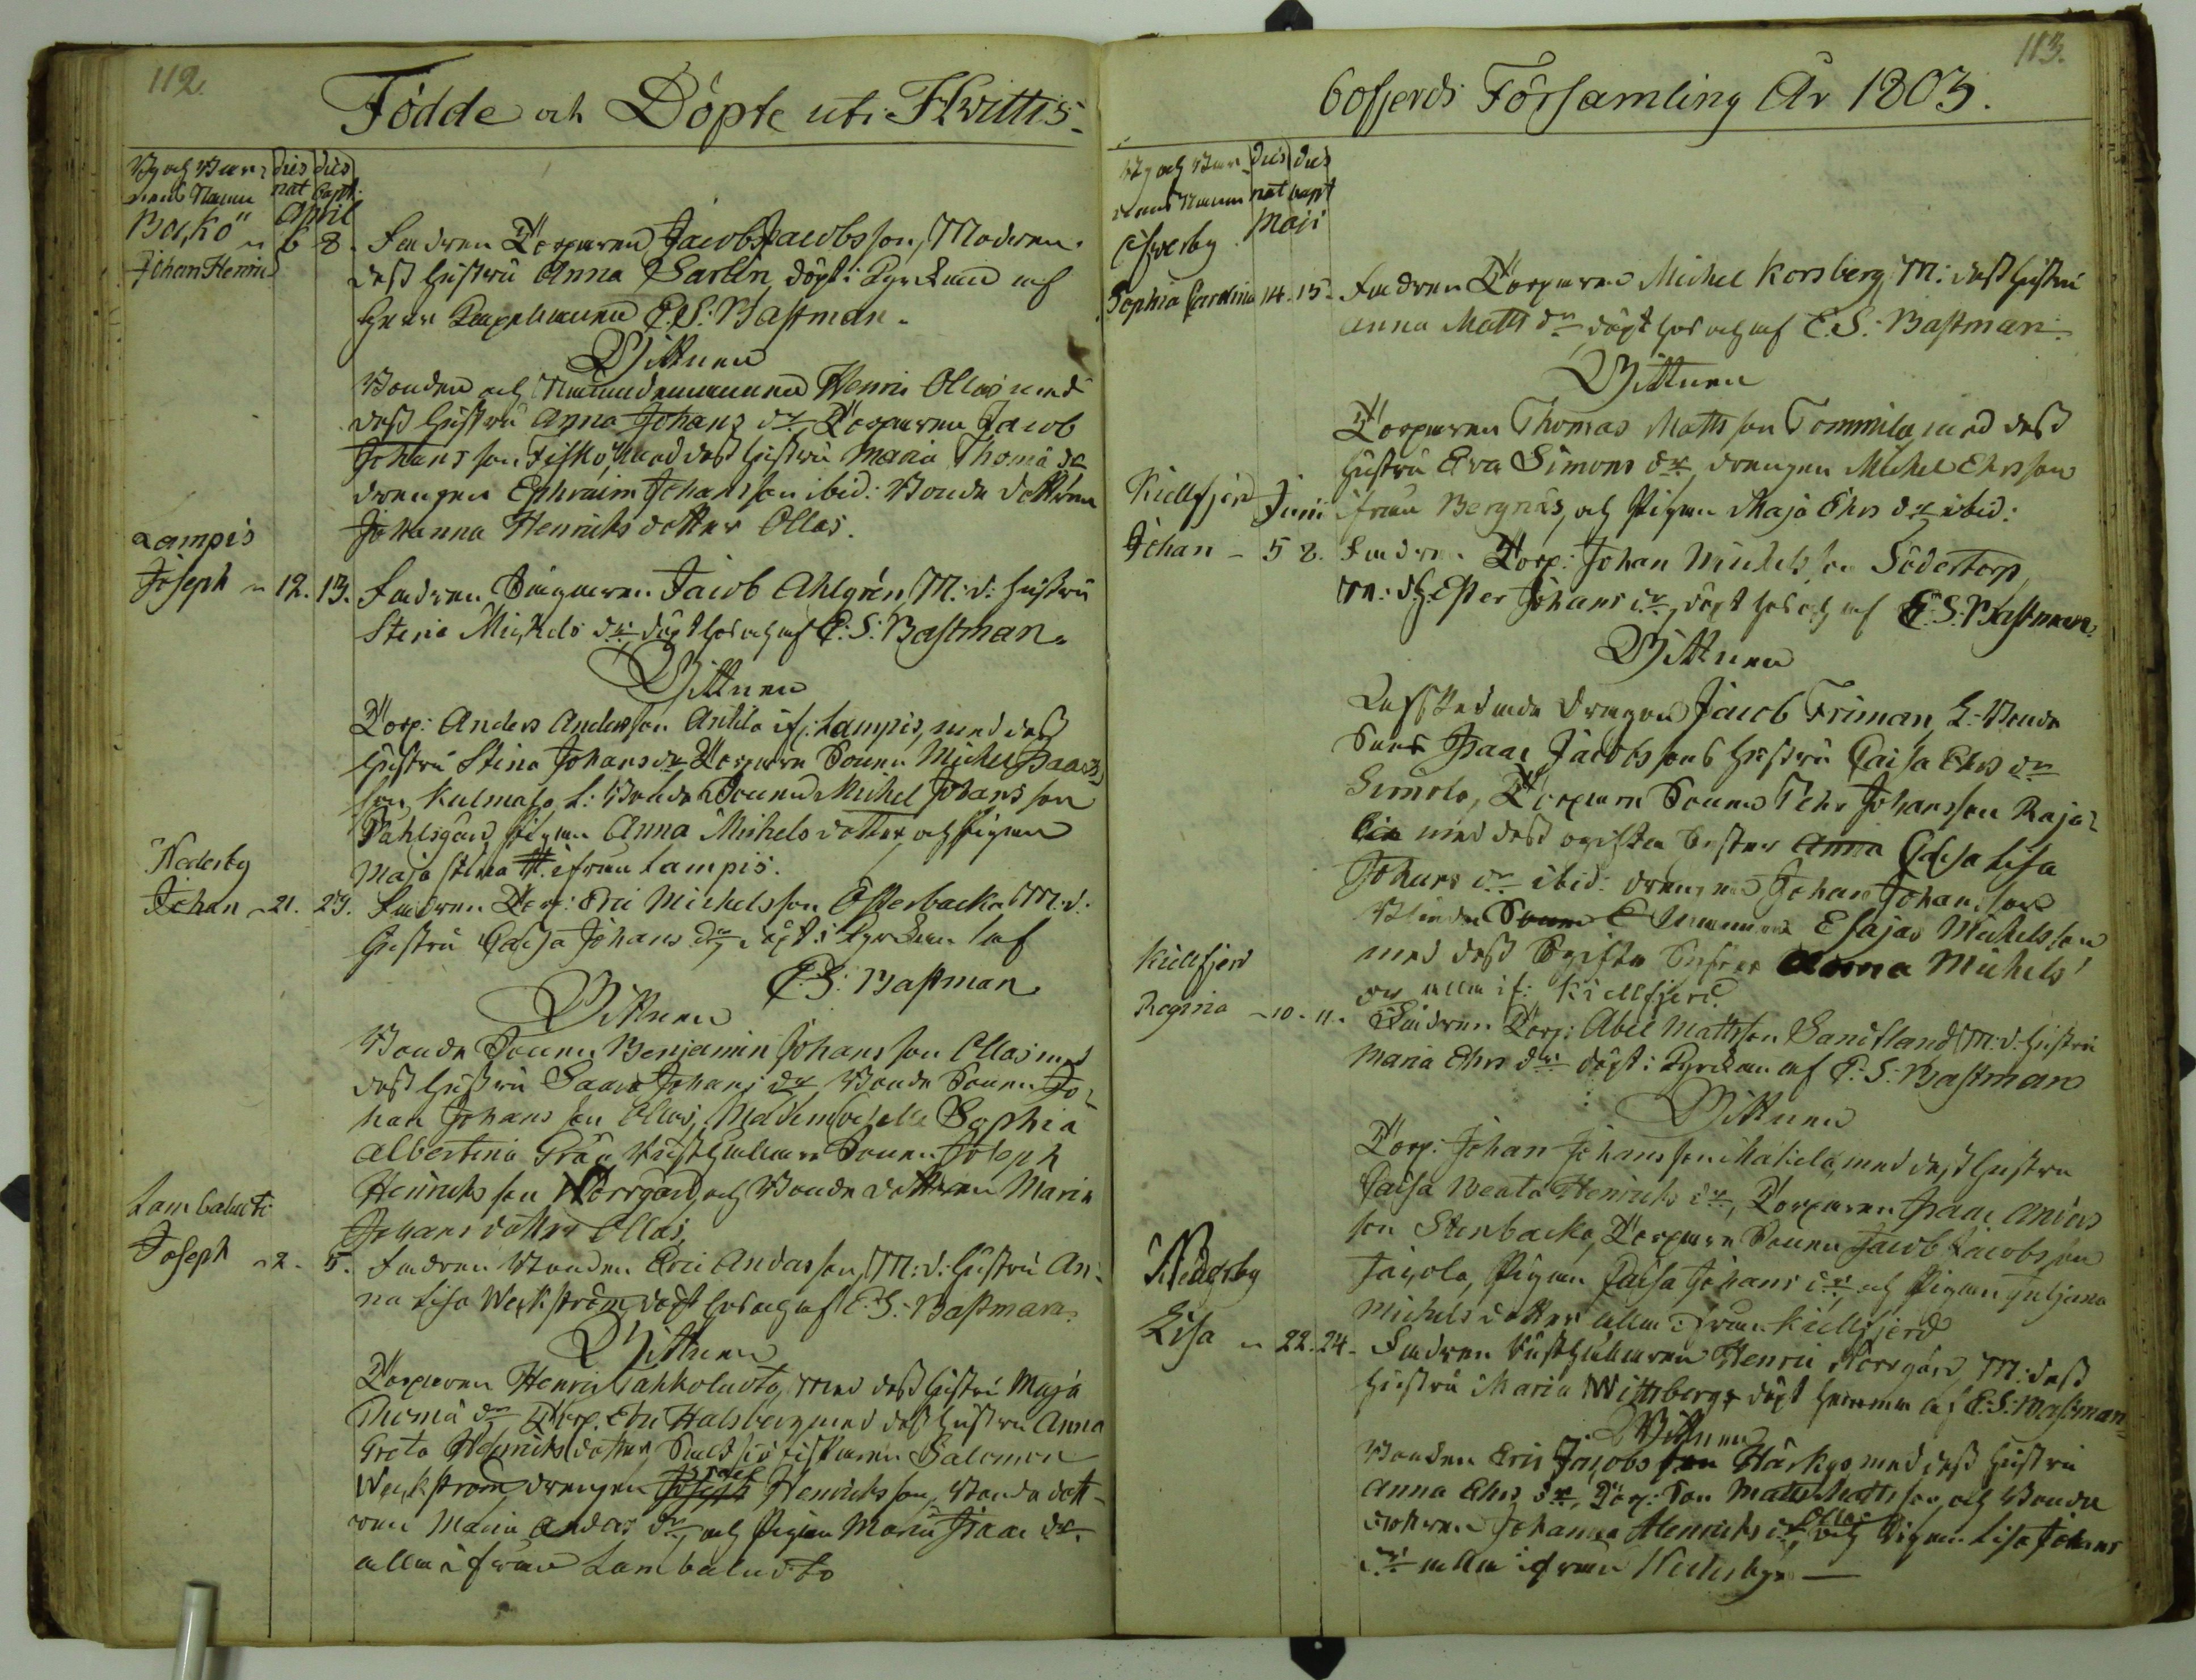 112.
Födde och Döpte uti Hvittis-
By och Bar-
nens Namn
dies nat
dies bapt.
April
Bockö
Johan Henric
6 8. Fadren Torparen Jacob Jacobsson, Modren
dess hustru Anna Sarlin, döpt i Kyrckan af
Herr Kapellanen E. S. Bastman.
Vittnen
Bonden och Nämndemannen Henric Ollas med
dess hustru Anna Johans dr Torparen Jacob
Johansson Fiskö, med dess hustru Maria Thomä dr
drengen Ephraim Johansson ibid: Bonde dottren
Johanna Henrichs dotter Ollas.
Lampis
Joseph
12. 13. Fadren Jacob Ahlgrén, M: d: hustru
Stina Michels dr döpt hos och af E: S: Bastman.
Vittnen
Torp: Anders Andersson Anttila if: Lampis, med dess
hustru Stina Johans dr Torpare Sonen Michel Isaacs
son Kulmala, L: Bonde Sonen Michel Johansson
Dahlsgård, Pigan Anna Michels dotter och Pigan
Maja Stina ifrån Lampis.
Nederby
Johan
21. 23. Fadren Torp: Eric Michelsson Österbacka M: d:
hustru Cajsa Johans dr, döpt i Kyrckan af
E: S: Bastman
Vittnen
Bonde Sonen Benjamin Johansson Ollas med
dess hustru Saara Johans dr Bonde Sonen Jo-
han Johansson Ollas, Mademoiselle Sophia
Albertina Grää, Rusthållare Sonen Joseph
Henrichsson Norrgård, och Bonde dottren Maria
Johans dotter Ollas.
Lambaluoto
Joseph
2. 5. Fadren Bonden Eric Andersson, M: d: hustru An-
na Lisa Weckström, döpt hos och af E: S: Bastman.
Vittnen
Torparen Henric Tahkoluoto, med dess hustru Maja
Thomä dr Torp. Eric Halsberg med dess hustru Anna
Greta Henrichs dotter fiskaren Salomon
Weckström, drengen Israel Henrichsson, Bonde dott-
ren Maria Anders dr, och Pigan Maria Isaac dr
alla ifrån Lambaluoto
113.
bofjerds Församling År 1803.
By och Bar-
nens Namn
dies nat
dies bapt
Maji
Öfverby
Sophia Carolina 14. 15. Fadren Torparen Michel Korsberg, M: dess hustru
Anna Matts dr döpt hos och af E. S. Bastman.
Vittnen
Torparen Thomas Mattsson Tommila, med dess
hustru Eva Simons dr, drengen Michel Ehrsson
ifrån Bergnäs, och Pigan Maja Ehrs dr ibid:
Kiellfjerd
Junii
Johan - 5 8. Fadren Torp: Johan Michelsson Södertorp,
M: d: h: Ester Johans dr, döpt hos och af E. S. Bastman.
Vittnen
Afskedade Dragon Jacob Friman, L: Bonde
Sons Isaac Jacobssons hustru Caisa Ehrs dr
Simola, Torpare Sonen Pehr Johansson Raja-
lin med dess ogifta Syster Cajsa Lisa
Johans dr ibid: drengen Johan Johansson
Esajas Michelsson
med dess ogifta Syster Anna Michels
dr alla if: Kiellfjerd.
Kiellfjerd
Regina - 10. 11. Fadren Torp: Abel Mattsson Sandstland M: d: hustru
Maria Ehrs dr döpt i Kyrckan af E: S: Bastman
Vittnen
Torp: Johan Johansson Mäkelä, med dess hustru
Caisa Beata Henrichs dr, Torparen Isaac Anders
son Stenbacka, Torpare Sonen Jacob Jacobsson
Pigan Caisa Johans dr, och Pigan Juljana
Michels dotter alla ifrån Kiellfjerd
Nederby
Lisa
22. 24. Fadren Rusthållaren Henric Norrgård M: dess
hustru Maria Wittberg, döpt hemma af E: S: Bastman
Vittnen
Bonden Eric Jacobsson Härkys med dess hustru
Anna Ehrs dr, Torp: Son Matts Mattsson, och Bonde
dottren Johanna Henrichs dr Ollas, och Pigan Lisa Johans
dr alla ifrån Nederby